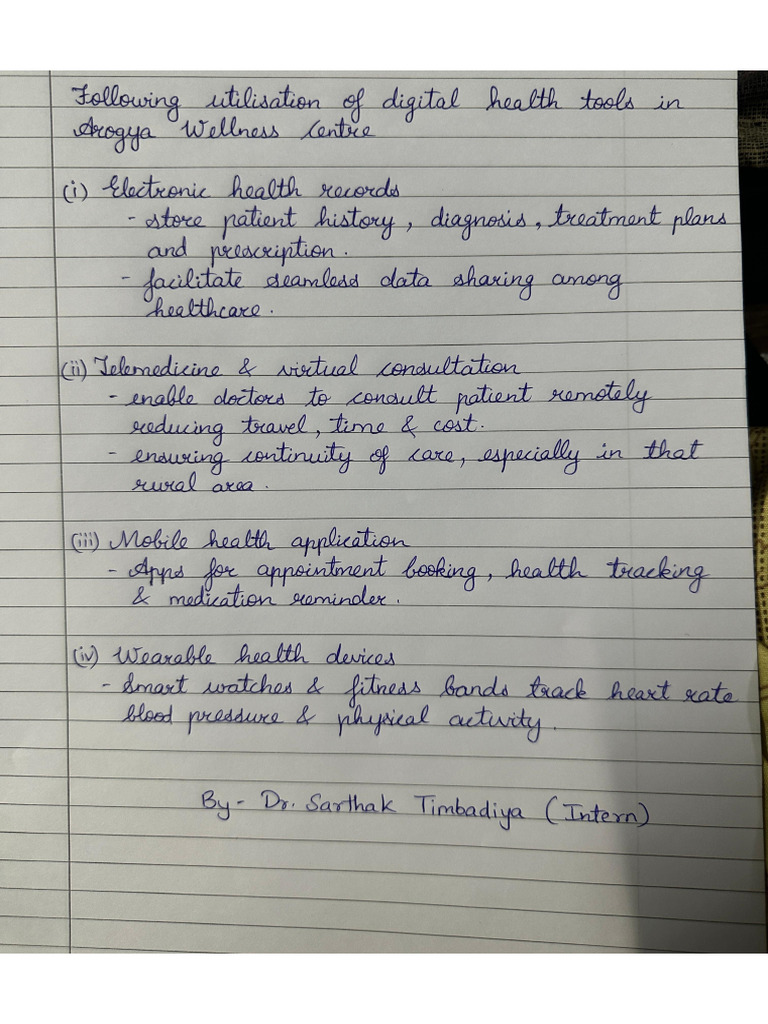 Following utilisation of digital health tools in
Arogya Wellness Centre
(i) Electronic health records
- store patient history, diagnosis, treatment plans
and prescription.
- facilitate seamless data sharing among
healthcare.
(ii) Telemedicine & virtual consultation
- enable doctors to consult patient remotely
reducing travel, time & cost.
- ensuring continuity of care, especially in that
rural area.
(iii) Mobile health application
- Apps for appointment booking, health tracking
& medication reminder.
(iv) Wearable health devices
- Smart watches & fitness bands track heart rate
blood pressure & physical activity.
By - Dr. Sarthak Timbadiya (Intern)